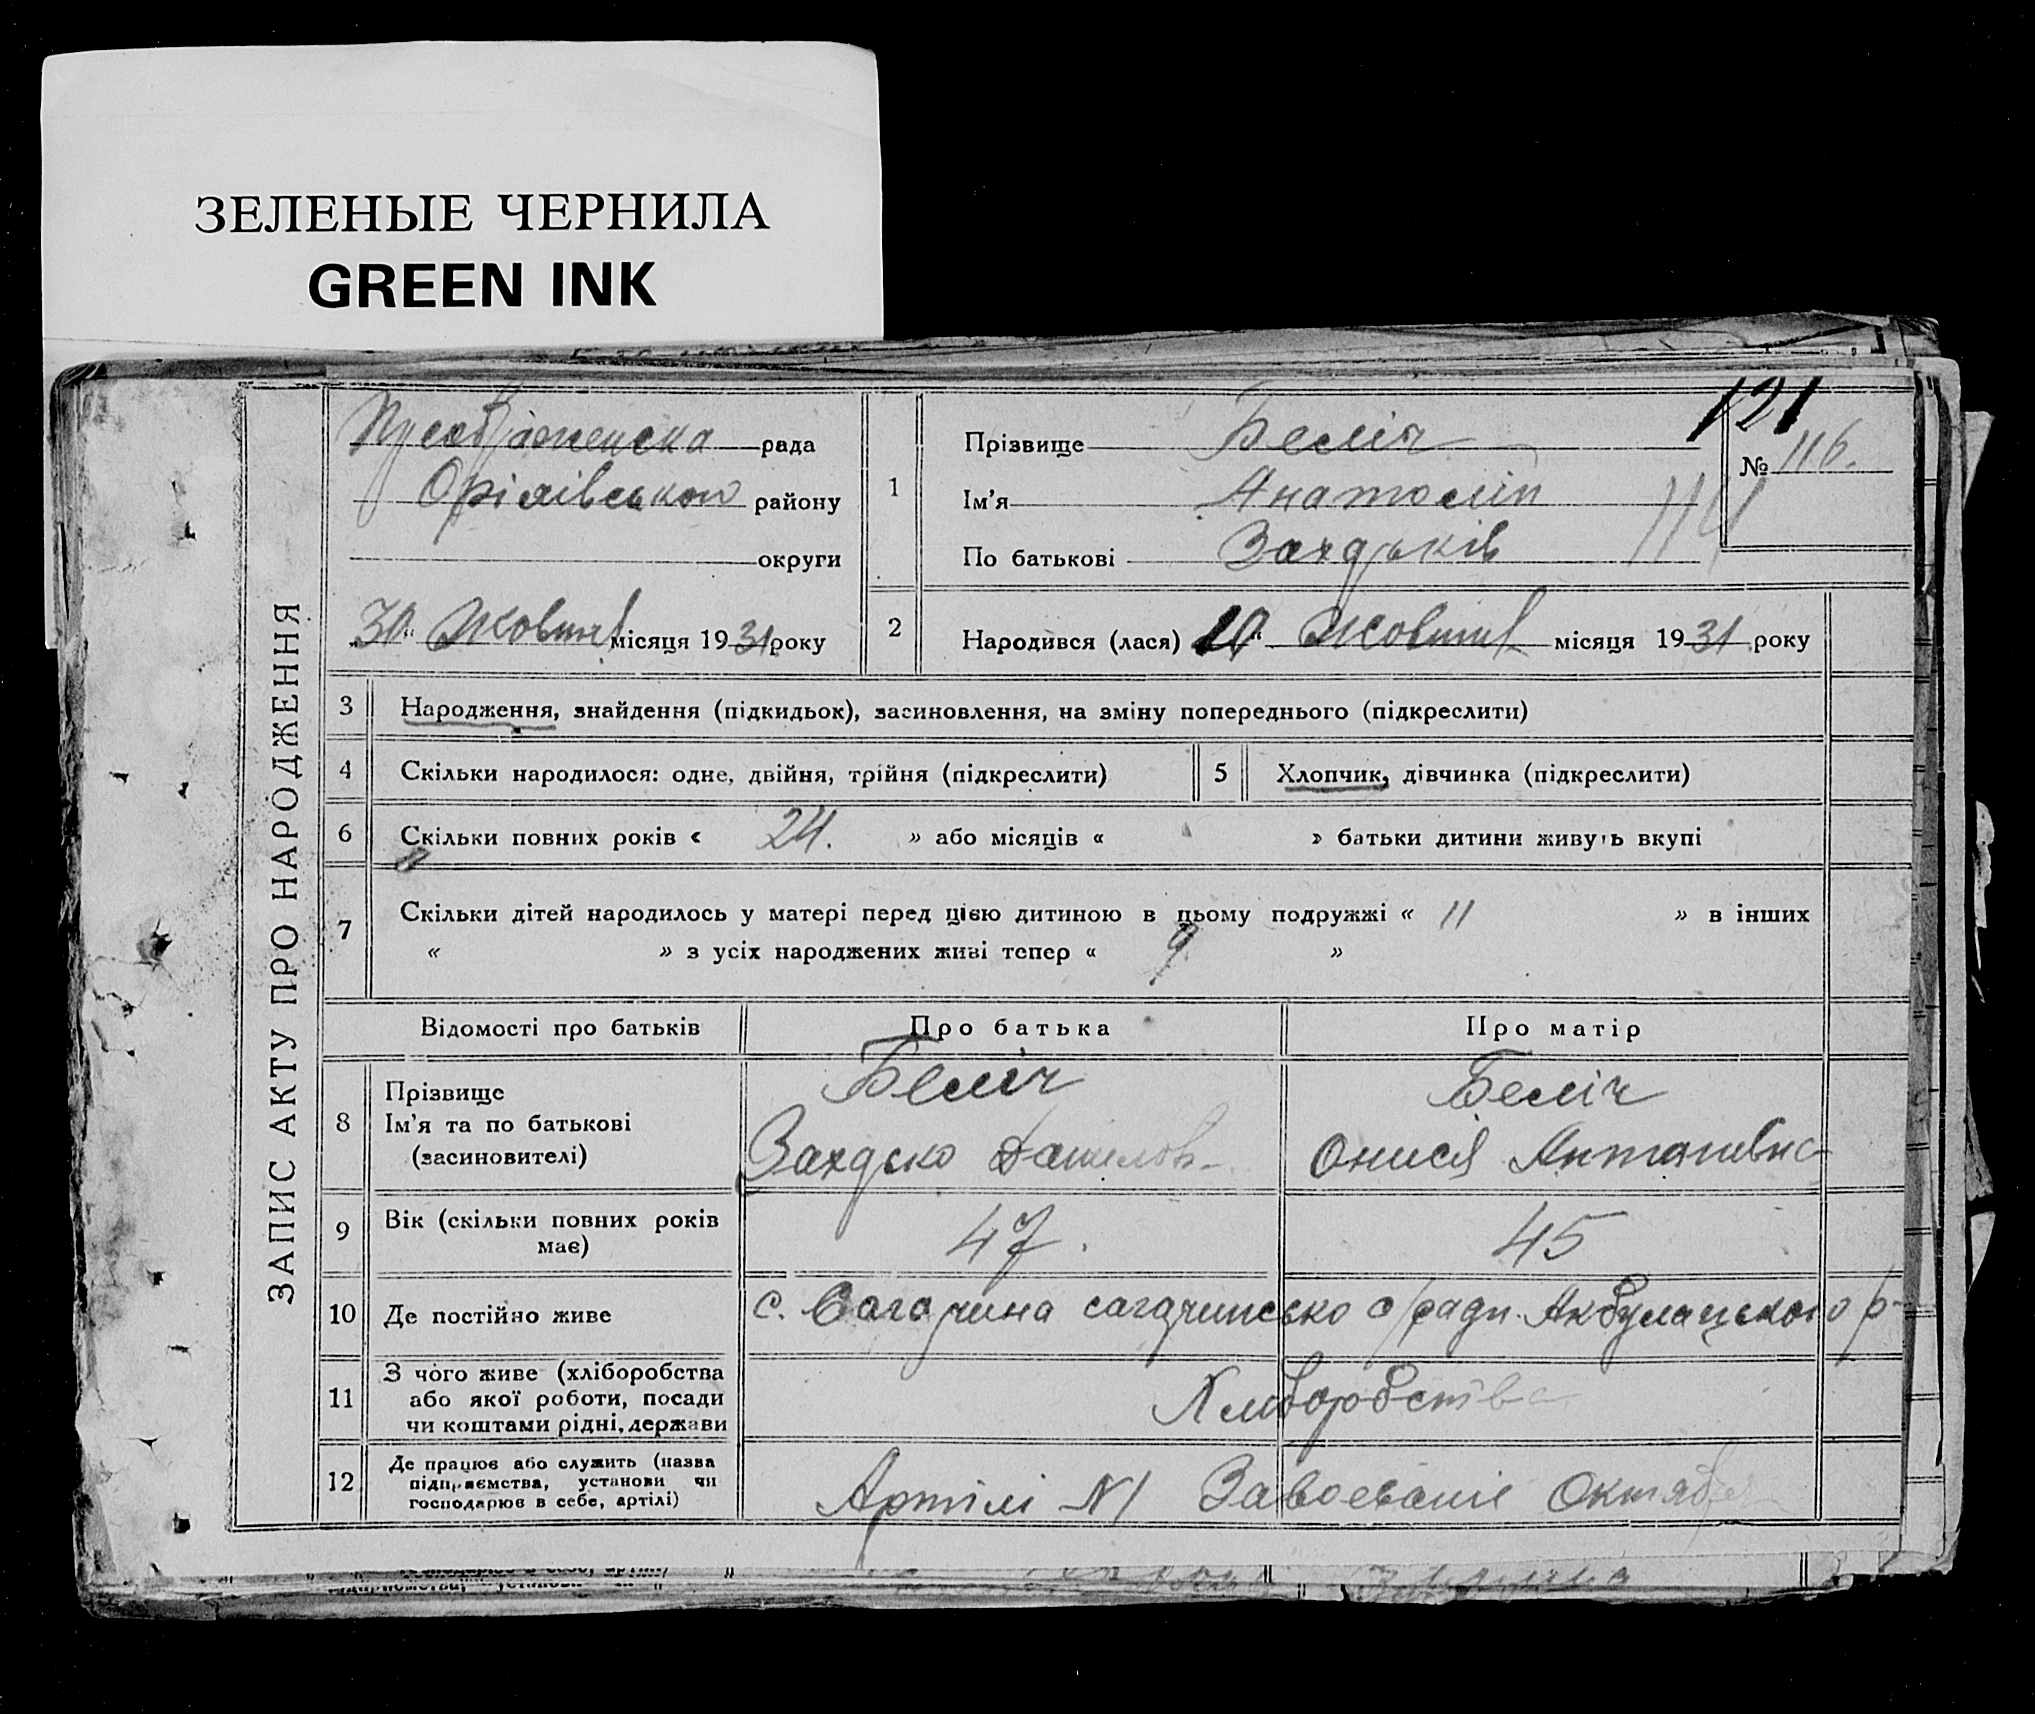 ЗЕЛЕНЫЕ ЧЕРНИЛА
GREEN INK
ЗАПИС АКТУ ПРО НАРОДЖЕННЯ
рада
району
округи
30 Жовтня місяця 1931 року
1
Прізвище Беліч
Ім'я
По батькові
121
№ 116.
114
2
Народився (лася) Жовтня місяця 1931 року
3 Народження, знайдення (підкидьок), засиновлення, на зміну попереднього (підкреслити)
4 Скільки народилося: одне, двійня, трійня (підкреслити)
5 Хлопчик, дівчинка (підкреслити)
6 Скільки повних років « 24. » або місяців « » батьки дитини живуть вкупі
7 Скільки дітей народилось у матері перед цією дитиною в цьому подружжі « 11 » в інших
« » з усіх народжених живі тепер « 9 »
Відомості про батьків
Про батька
Про матір
8 Прізвище
Ім'я та по батькові
(засиновителі)
Беліч
Данилов
Беліч
Онисія Антонівна
9 Вік (скільки повних років
має)
47.
45
10 Де постійно живе
с. Сагарчина
11 З чого живе (хліборобства
або якої роботи, посади
чи коштами рідні, держави
Хліборобство
12 Де працює або служить (назва
підприємства, установи чи
господарює в себе, артілі)
Артілі №1 Завоеваніе Октября